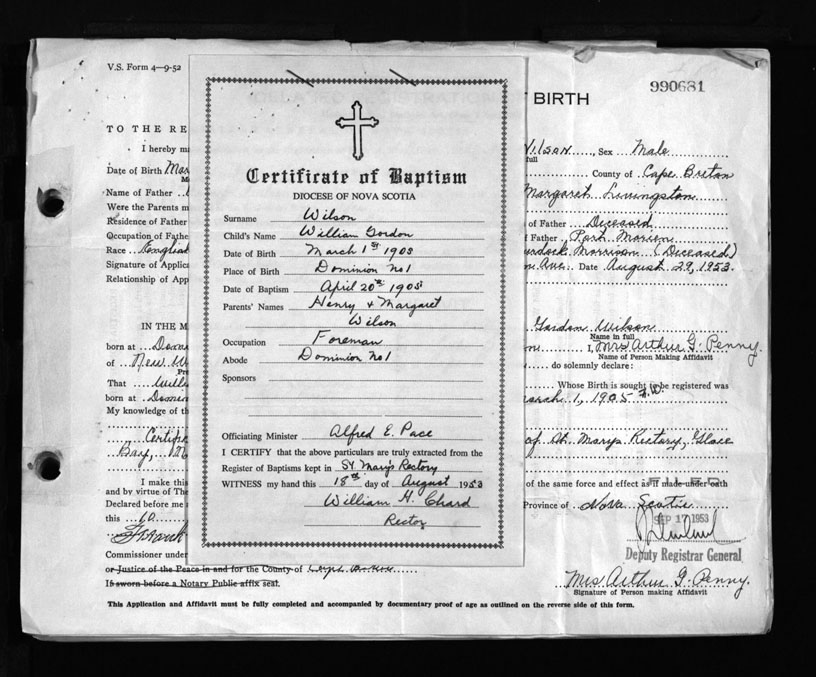 V.S. Form 4—9-52
990681
BIRTH
TO THE RE
I hereby ma
Wilson Sex Male
full
Date of Birth Mar
County of Cape Breton
Name of Father
Margaret Livingston
Were the Parents m
Residence of Father
of Father Deceased
Occupation of Fathe
f Father Port Morien
Race English
urdock Morrison (Deceased)
Signature of Applica
n Ave. Date August 29, 1953.
Relationship of App
Certificate of Baptism
DIOCESE OF NOVA SCOTIA
Surname Wilson
Child's Name William Gordon
Date of Birth March 1st 1905
Place of Birth Dominion No 1
Date of Baptism April 20th 1905
Parents' Names Henry & Margaret
Wilson
Occupation Foreman
Abode Dominion No 1
Sponsors
Officiating Minister Alfred E. Pace
I CERTIFY that the above particulars are truly extracted from the
Register of Baptisms kept in St Mary's Rectory
WITNESS my hand this 18th day of August 1953
William H. Chard
Rector
IN THE M
Gordon Wilson
Name in full
born at Domi
I, Mrs Arthur G. Penny.
of New W
Name of Person Making Affidavit
do solemnly declare:
That Willi
Whose Birth is sought to be registered was
born at Domin
arch 1, 1905
My knowledge of th
Certific
of St. Marys Rectory, Glace
Bay,
I make this
of the same force and effect as if made under oath
and by virtue of The
Declared before me
Province of Nova Scotia
this 10
SEP 17 1953
Deputy Registrar General
Commissioner under
or Justice of the Peace in and for the County of
If sworn before a Notary Public affix seal.
Mrs. Arthur G. Penny.
Signature of Person making Affidavit
This Application and Affidavit must be fully completed and accompanied by documentary proof of age as outlined on the reverse side of this form.